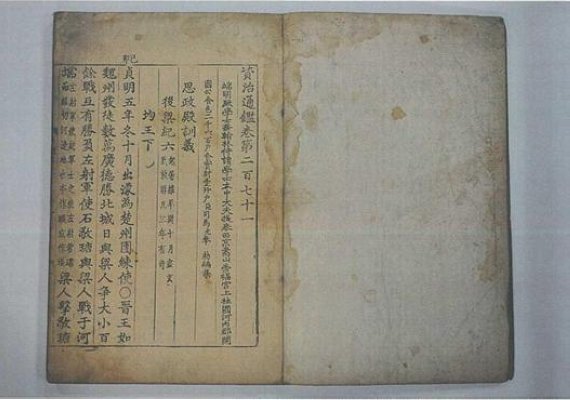 資治通鑑卷第二百七十一
端明殿學士兼翰林侍讀學士太中大夫提擧西京嵩山崇福宮上柱國河內郡開
國公食邑二千六百戶食實封壹阡戶臣司馬光奉 勅編集
思政殿訓義
後梁紀六 起屠維單閼十月盡玄黓敦牂凡三年有奇
均王下
貞明五年冬十月出濛為楚州團練使○晉王如
魏州發徒數萬廣德勝北城日與梁人爭大小百
餘戰互有勝負左射軍使石敬瑭與梁人戰于河
壖 梁人擊敬瑭